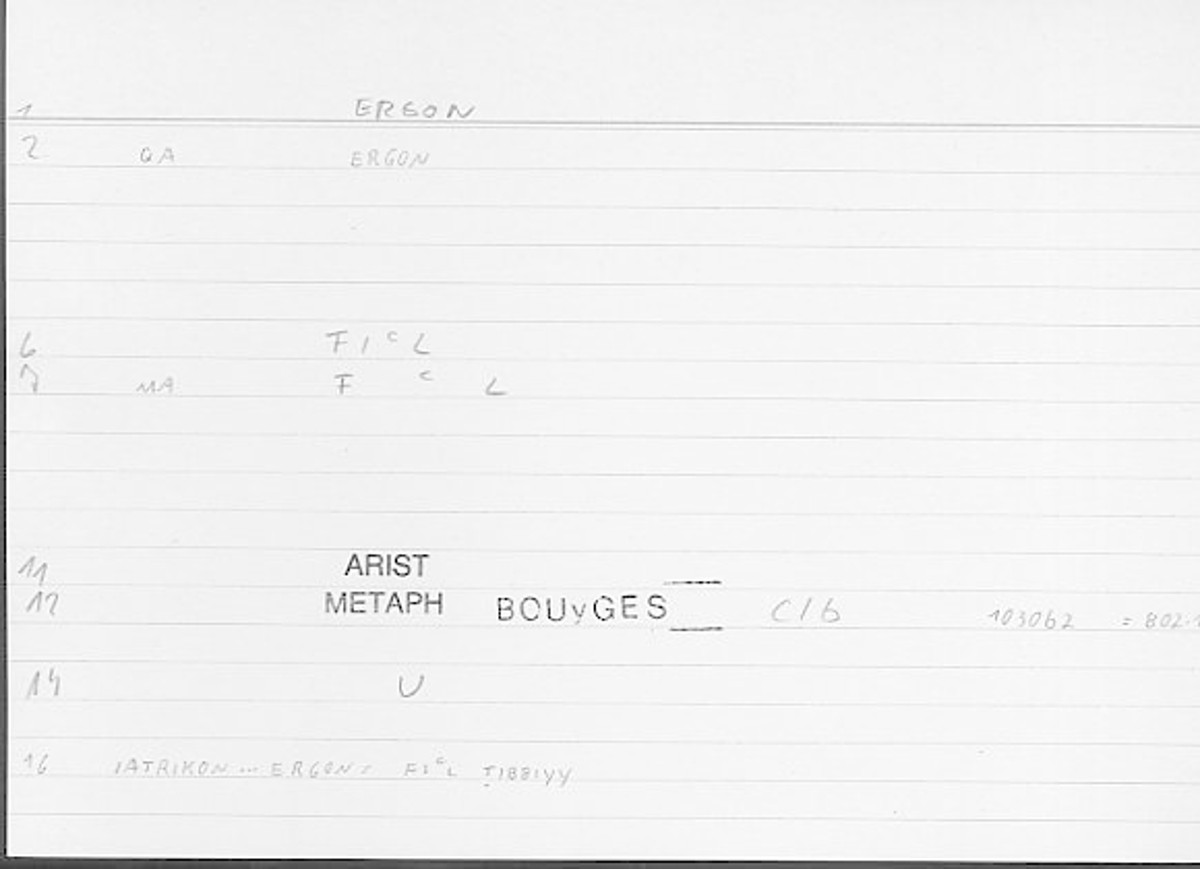 1 ERGON
2 QA ERGON
6 FIᶜL
7 MA F ᶜ L
11 ARIST
12 METAPH BOUyGES C16 103062 = 802-
14 U
16 IATRIKON ... ERGON: FIᶜL ṬIBBIYY